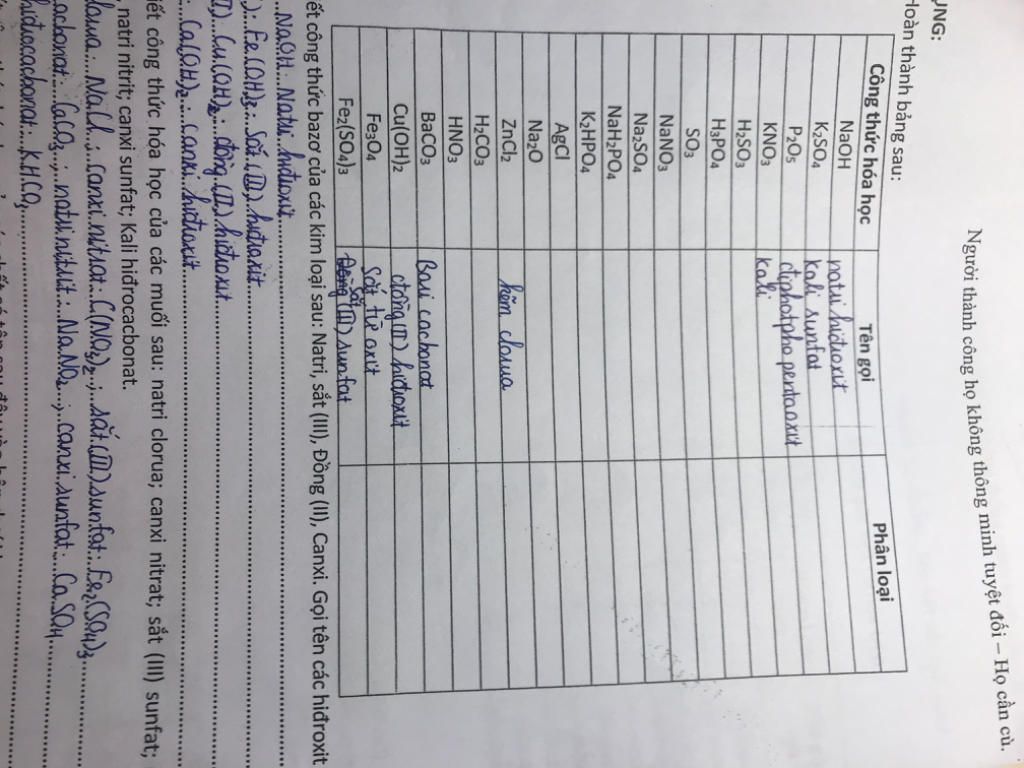 Người thành công họ không thông minh tuyệt đối – Họ cần cù.
ỤNG:
Hoàn thành bảng sau:
Công thức hóa học Tên gọi Phân loại
NaOH natri hiđroxit
K₂SO₄ kali sunfat
P₂O₅ điphotpho pentaoxit
KNO₃ kali
H₂SO₃
H₃PO₄
SO₃
NaNO₃
Na₂SO₄
NaH₂PO₄
K₂HPO₄
AgCl
Na₂O
ZnCl₂ kẽm clorua
H₂CO₃
HNO₃
BaCO₃ Bari cacbonat
Cu(OH)₂ đồng (II) hiđroxit
Fe₃O₄ Sắt từ oxit
Fe₂(SO₄)₃ Sắt (III) sunfat
ết công thức bazơ của các kim loại sau: Natri, sắt (III), Đồng (II), Canxi. Gọi tên các hiđroxit
NaOH: Natri hiđroxit
): Fe(OH)₃: Sắt (III) hiđroxit
I): Cu(OH)₂: đồng (II) hiđroxit
: Ca(OH)₂: canxi hiđroxit
iết công thức hóa học của các muối sau: natri clorua; canxi nitrat; sắt (III) sunfat;
, natri nitrit; canxi sunfat; Kali hiđrocacbonat.
clorua: NaCl; canxi nitrat: C(NO₃)₂; sắt (III) sunfat: Fe₂(SO₄)₃
acbonat: CaCO₃; natri nitrit: NaNO₂; canxi sunfat: CaSO₄
hiđrocacbonat: KHCO₃